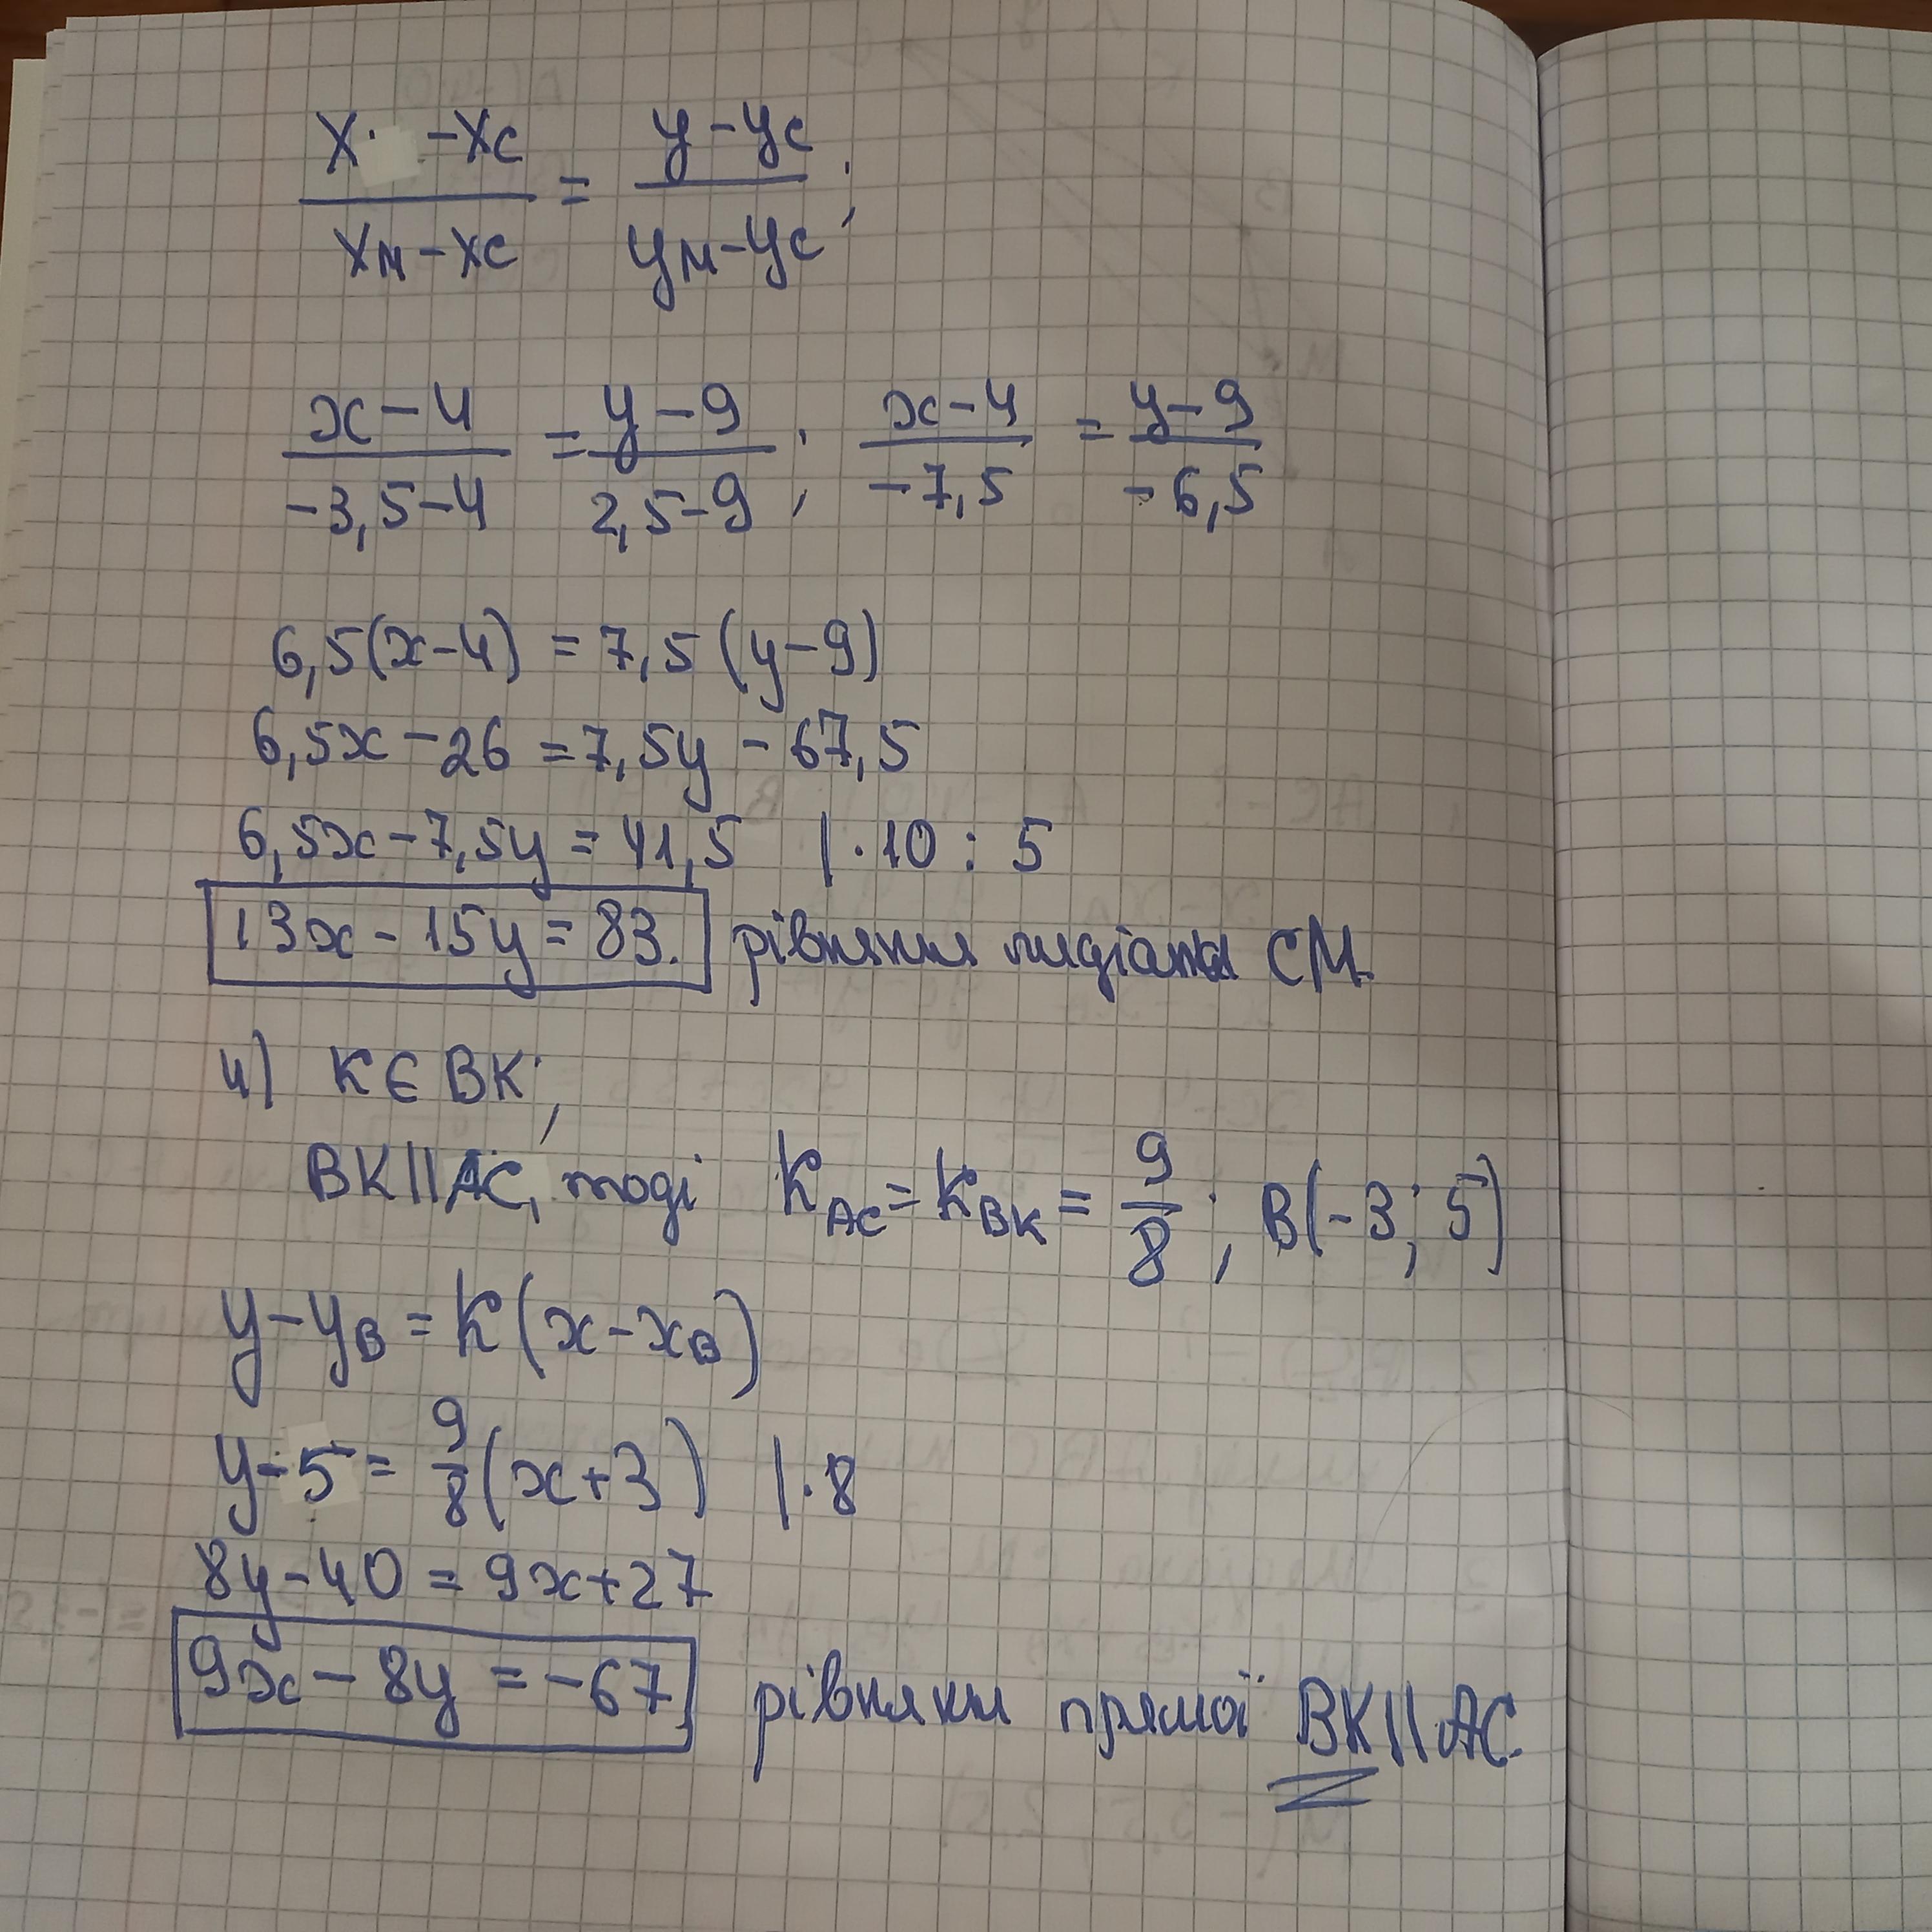 (x - xc)/(xм - xc) = (y - yc)/(yм - yc);
(x - 4)/(-3,5 - 4) = (y - 9)/(2,5 - 9); (x - 4)/(-7,5) = (y - 9)/(-6,5)
6,5(x - 4) = 7,5(y - 9)
6,5x - 26 = 7,5y - 67,5
6,5x - 7,5y = 41,5 | · 10 : 5
13x - 15y = 83. рівняння медіани CM.
4) K ∈ BK;
BK || AC, тоді k_AC = k_BK = 9/8; B(-3; 5)
y - y_B = k(x - x_B)
y - 5 = 9/8(x + 3) | · 8
8y - 40 = 9x + 27
9x - 8y = -67 рівняння прямої BK || AC.